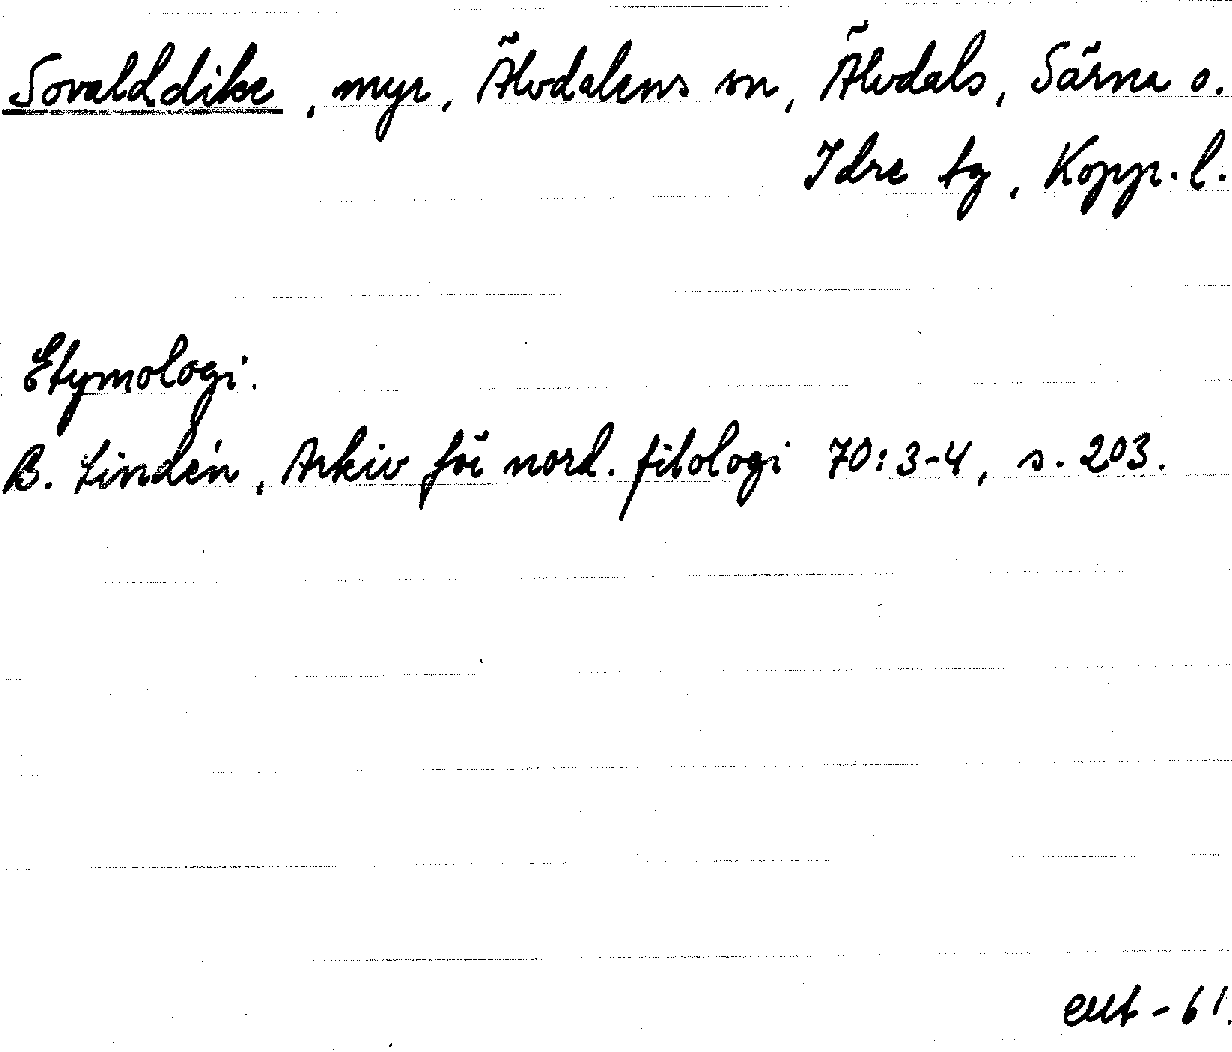 Sovalddike, myr, Älvdalens sn, Älvdals, Särna o.
Idre tg, Kopp. l.
Etymologi.
B. Lindén, Arkiv för nord. filologi 70:3-4, s. 203.
-61.